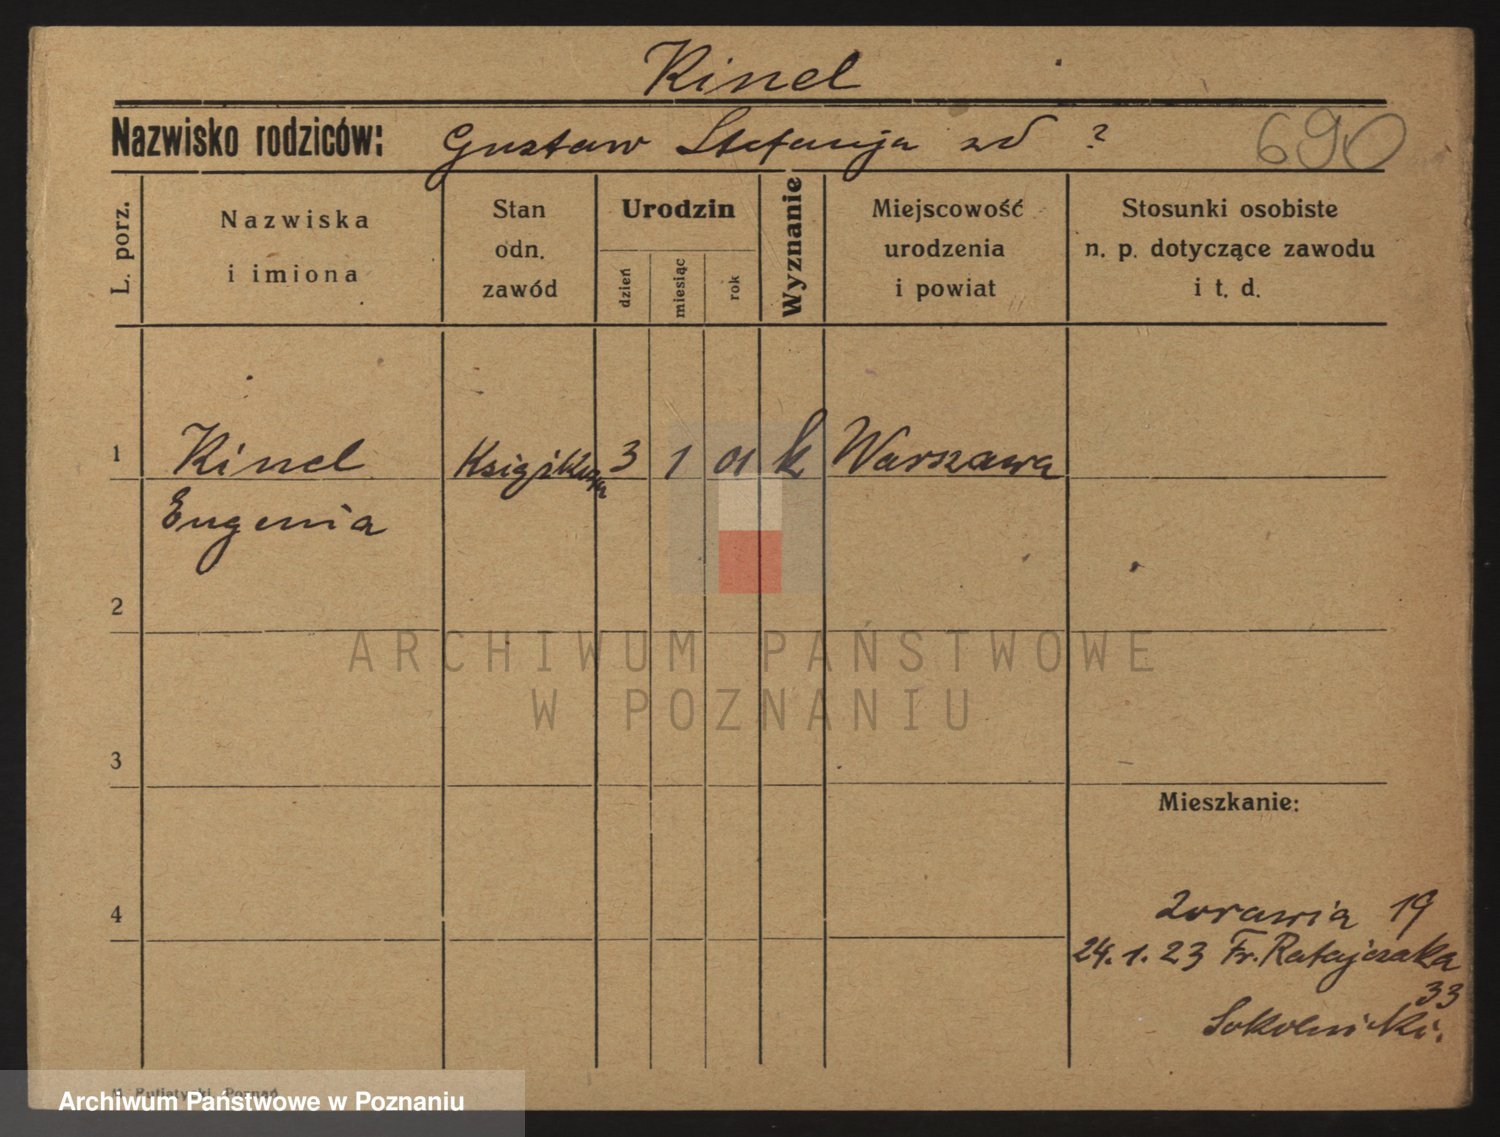 Kinel
Nazwisko rodziców: Gustaw Stefanja zd ?
690
L. porz.
Nazwiska
i imiona
Stan
odn.
zawód
Urodzin
dzień
miesiąc
rok
Wyznanie
Miejscowość
urodzenia
i powiat
Stosunki osobiste
n. p. dotyczące zawodu
i t. d.
1 Kinel 3 1 01 k Warszawa
Eugenia
2
ARCHIWUM PAŃSTWOWE
W POZNANIU
3
Mieszkanie:
4
Zorawia 19
24.1.23 Fr. Ratajczaka
33
Sokolnicki.
Poznań
Archiwum Państwowe w Poznaniu